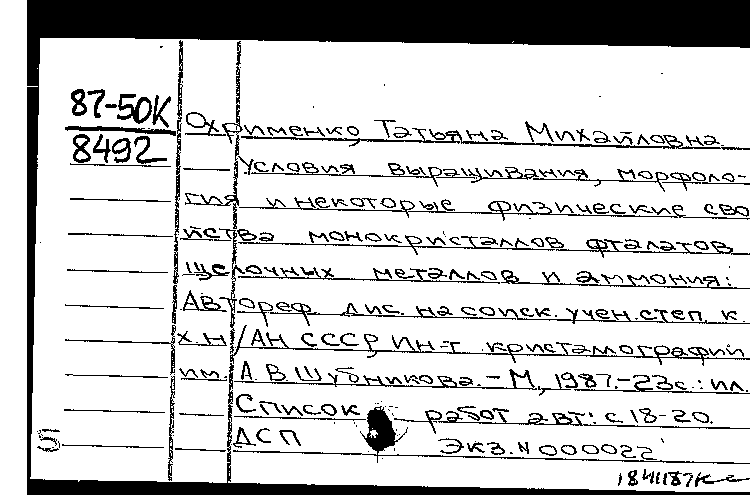 87-50К
8492
Охрименко, Татьяна Михайловна
Условия выращивания, морфоло-
гия и некоторые физические сво
йства монокристаллов фталатов
щелочных металлов и аммония:
Автореф. дис. на соиск. учен. степ. к.
х.н/АН СССР, Ин-т кристаллографии
им. А В Шубникова.-М, 1987.-23с.: ил.
Список работ авт: с 18-20.
5 ДСП Экз. N 000022